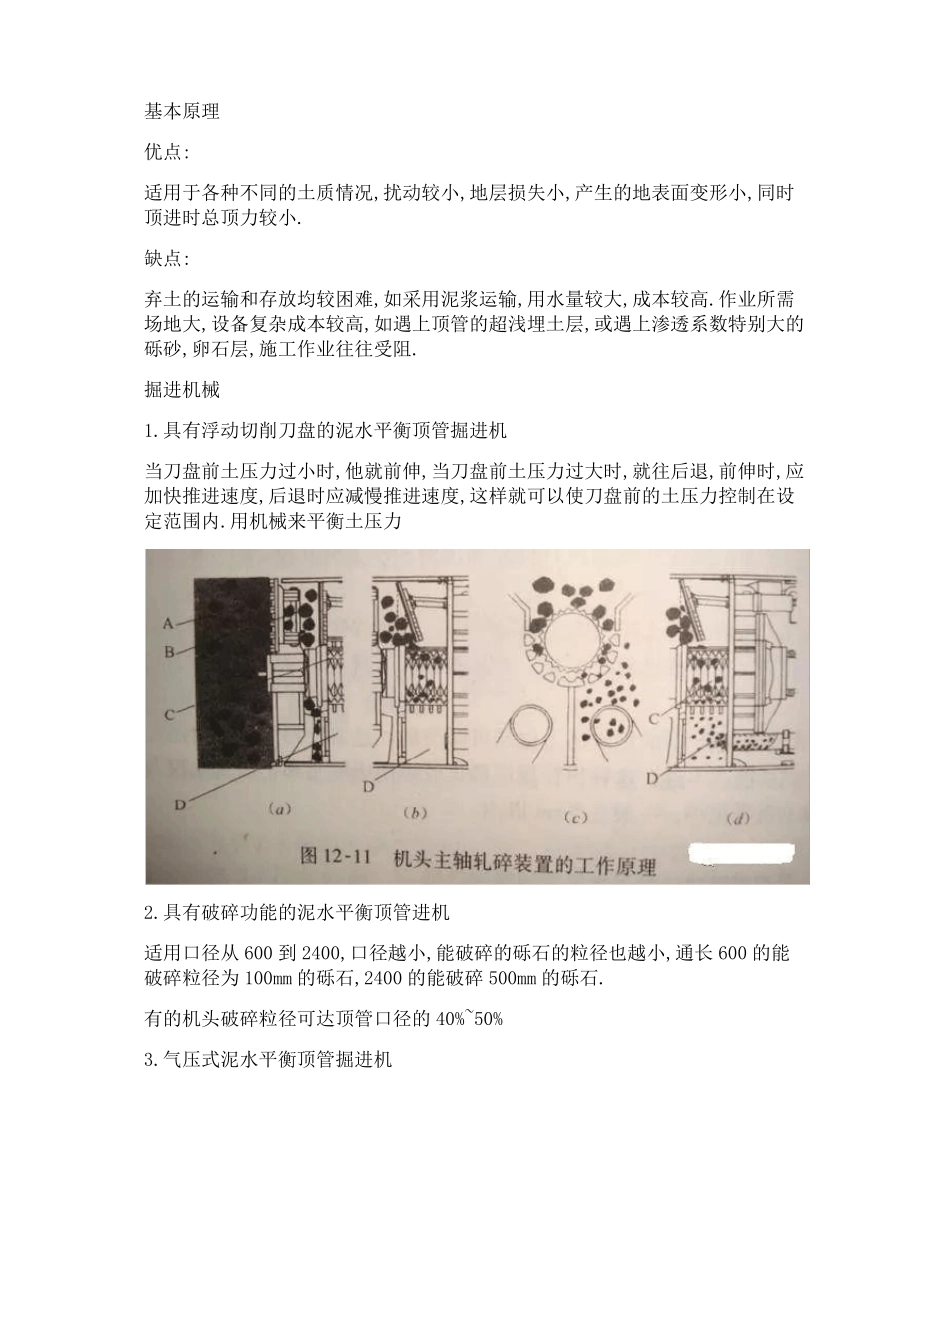 基本原理
优点:
适用于各种不同的土质情况,扰动较小,地层损失小,产生的地表面变形小,同时
顶进时总顶力较小.
缺点:
弃土的运输和存放均较困难,如采用泥浆运输,用水量较大,成本较高.作业所需
场地大,设备复杂成本较高,如遇上顶管的超浅埋土层,或遇上渗透系数特别大的
砾砂,卵石层,施工作业往往受阻.
掘进机械
1.具有浮动切削刀盘的泥水平衡顶管掘进机
当刀盘前土压力过小时,他就前伸,当刀盘前土压力过大时,就往后退,前伸时,应
加快推进速度,后退时应减慢推进速度,这样就可以使刀盘前的土压力控制在设
定范围内.用机械来平衡土压力
A
B
C
D
(a)
D
(b)
(c)
C
D
(d)
图12-11 机头主轴轧碎装置的工作原理
2.具有破碎功能的泥水平衡顶管进机
适用口径从 600 到 2400,口径越小,能破碎的砾石的粒径也越小,通长 600 的能
破碎粒径为 100mm 的砾石,2400 的能破碎 500mm 的砾石.
有的机头破碎粒径可达顶管口径的 40%~50%
3.气压式泥水平衡顶管掘进机